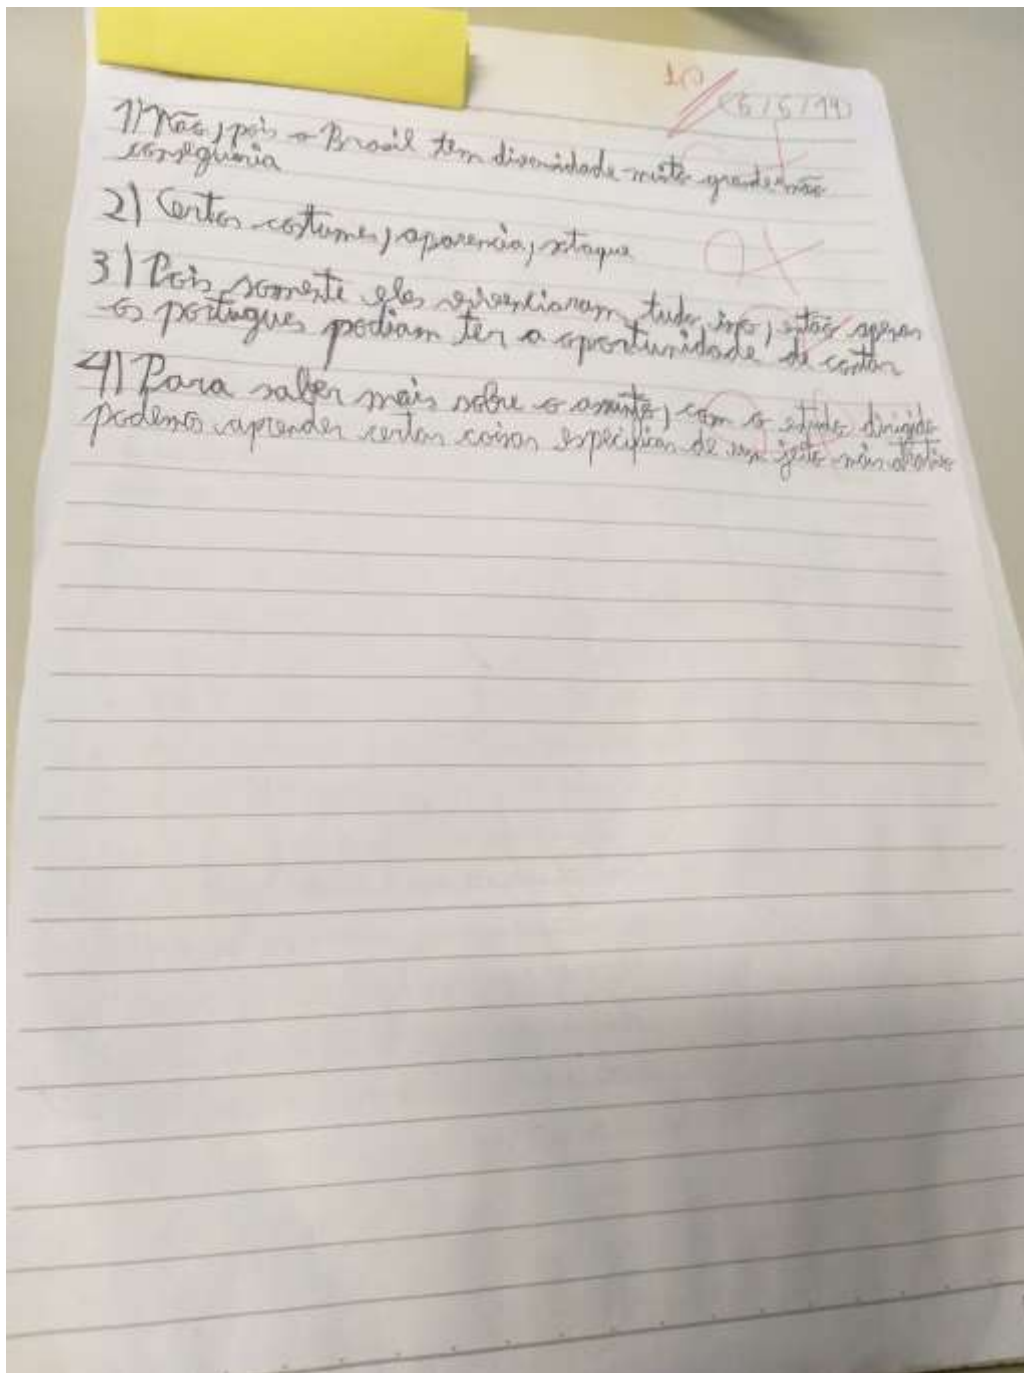 10
(5/5/19)
1) Não, pois o Brasil tem diversidade muito grande não
conseguiria
2) Certos costumes, aparencia, sotaque
3) Pois somente eles vivenciaram tudo isso, então apenas
os portugues podiam ter a oportunidade de contar
4) Para saber mais sobre o assunto, com o estudo dirigido
podemos aprender certas coisas especificas de um jeito mais